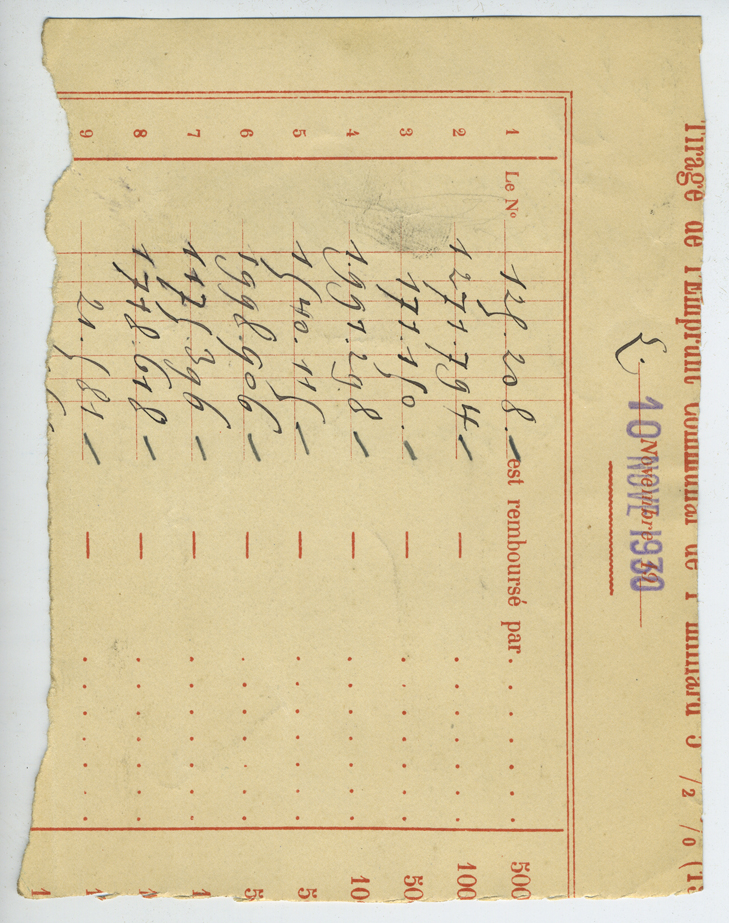 Tirage de l'Emprunt Communal de 1 milliard 5 1/2 % (19
L. 10 NOVE 1930
Novembre 19
1 Le N° 125.208. est remboursé par . . . . . . . 500
2 1271.794 — . . . . . . . 100
3 171.150. — . . . . . . . 50
4 1991.298 — . . . . . . . 10
5 1540.115 — . . . . . . . 5
6 1998.906 — . . . . . . . 5
7 1175.396 — . . . . . . . 1
8 1718.618 — . . . . . . . 1
9 21.581 — . . . . . . . 1
1